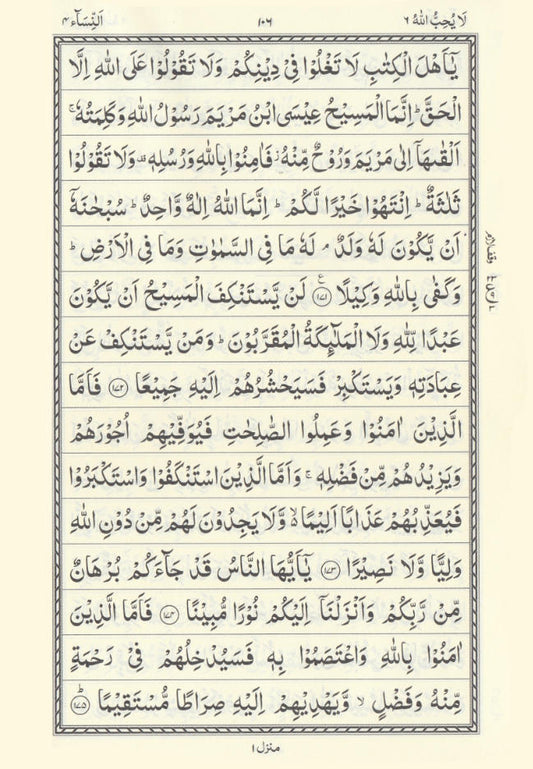 لَا يُحِبُّ اللهُ ٦ ١٠٦ اَلنِّسَآء ٤
يٰۤاَهْلَ الْكِتٰبِ لَا تَغْلُوْا فِيْ دِيْنِكُمْ وَلَا تَقُوْلُوْا عَلَى اللهِ اِلَّا
الْحَقَّ ؕ اِنَّمَا الْمَسِيْحُ عِيْسَى ابْنُ مَرْيَمَ رَسُوْلُ اللهِ وَكَلِمَتُهٗ ۚ
اَلْقٰىهَاۤ اِلٰى مَرْيَمَ وَرُوْحٌ مِّنْهُ ؗ فَاٰمِنُوْا بِاللهِ وَرُسُلِهٖ ۣۚ وَلَا تَقُوْلُوْا
ثَلٰثَةٌ ؕ اِنْتَهُوْا خَيْرًا لَّكُمْ ؕ اِنَّمَا اللهُ اِلٰهٌ وَّاحِدٌ ؕ سُبْحٰنَهٗۤ
اَنْ يَّكُوْنَ لَهٗ وَلَدٌ ۘ لَهٗ مَا فِي السَّمٰوٰتِ وَمَا فِي الْاَرْضِ ؕ
وَكَفٰى بِاللهِ وَكِيْلًا ﴿١٧١﴾ لَنْ يَّسْتَنْكِفَ الْمَسِيْحُ اَنْ يَّكُوْنَ
عَبْدًا لِّلّٰهِ وَلَا الْمَلٰٓئِكَةُ الْمُقَرَّبُوْنَ ؕ وَمَنْ يَّسْتَنْكِفْ عَنْ
عِبَادَتِهٖ وَيَسْتَكْبِرْ فَسَيَحْشُرُهُمْ اِلَيْهِ جَمِيْعًا ﴿١٧٢﴾ فَاَمَّا
الَّذِيْنَ اٰمَنُوْا وَعَمِلُوا الصّٰلِحٰتِ فَيُوَفِّيْهِمْ اُجُوْرَهُمْ
وَيَزِيْدُهُمْ مِّنْ فَضْلِهٖ ۚ وَاَمَّا الَّذِيْنَ اسْتَنْكَفُوْا وَاسْتَكْبَرُوْا
فَيُعَذِّبُهُمْ عَذَابًا اَلِيْمًا ۙ۬ وَّلَا يَجِدُوْنَ لَهُمْ مِّنْ دُوْنِ اللهِ
وَلِيًّا وَّلَا نَصِيْرًا ﴿١٧٣﴾ يٰۤاَيُّهَا النَّاسُ قَدْ جَآءَكُمْ بُرْهَانٌ
مِّنْ رَّبِّكُمْ وَاَنْزَلْنَاۤ اِلَيْكُمْ نُوْرًا مُّبِيْنًا ﴿١٧٤﴾ فَاَمَّا الَّذِيْنَ
اٰمَنُوْا بِاللهِ وَاعْتَصَمُوْا بِهٖ فَسَيُدْخِلُهُمْ فِيْ رَحْمَةٍ
مِّنْهُ وَفَضْلٍ ۙ وَّيَهْدِيْهِمْ اِلَيْهِ صِرَاطًا مُّسْتَقِيْمًا ﴿١٧٥﴾
منزل ١